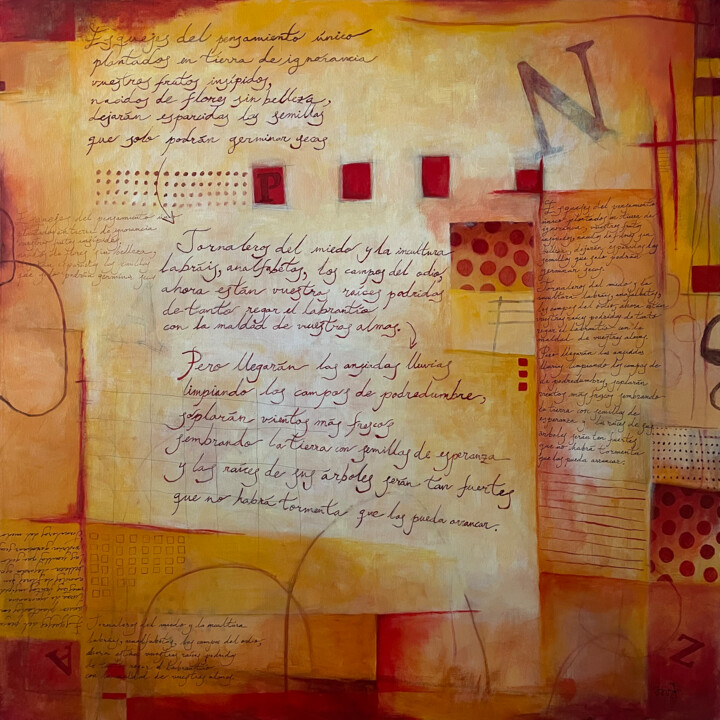 Esquejes del pensamiento único
plantados en tierra de ignorancia
vuestros frutos insípidos,
nacidos de flores sin belleza,
dejarán esparcidas las semillas
que solo podrán germinar secas
N
P
Jornaleros del miedo y la incultura
labráis, analfabetos, los campos del odio,
ahora están vuestras raíces podridas
de tanto regar el labrantío
con la maldad de vuestras almas.
Pero llegarán las ansiadas lluvias
limpiando los campos de podredumbre,
soplarán vientos más frescos
sembrando la tierra con semillas de esperanza
y las raíces de sus árboles serán tan fuertes
que no habrá tormenta que las pueda arrancar.
Esquejes del pensamiento
Esquejes del pensamiento
único plantados en tierra de
ignorancia, vuestros frutos
insípidos, nacidos de flores sin
belleza, dejarán esparcidas las
semillas que solo podrán
germinar secas
Jornaleros del miedo y la
incultura labráis, analfabetos,
los campos del odio, ahora están
vuestras raíces podridas de tanto
regar el labrantío con la
maldad de vuestras almas.
Pero llegarán las ansiadas
lluvias limpiando los campos de
podredumbre, soplarán
vientos más frescos sembrando
la tierra con semillas de
esperanza y las raíces de sus
árboles serán tan fuertes
que no habrá tormenta
que las pueda arrancar.
Jornaleros del miedo y la incultura
labráis, analfabetos, los campos del odio,
ahora están vuestras raíces podridas
de tanto regar el labrantío
con la maldad de vuestras almas.
A
Z